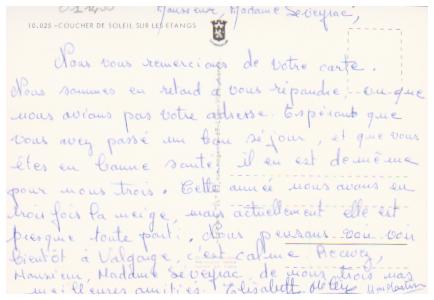 Monsieur, Madame Seveyrac,
10.025 - COUCHER DE SOLEIL SUR LES ETANGS
Nous vous remercions de votre carte.
Nous sommes en retard à vous répondre, vu que
nous avions pas votre adresse. Espérant que
vous avez passé un bon séjour, et que vous
êtes en bonne santé, il en est de même
pour nous trois. Cette année nous avons eu
trois fois la neige, mais actuellement elle est
presque toute parti. Nous pensons vous voir
bientôt à Valgorge, c'est calme. Recevez,
Monsieur, Madame Seveyrac, de nous trois nos
meilleures amitiés. Elisabeth